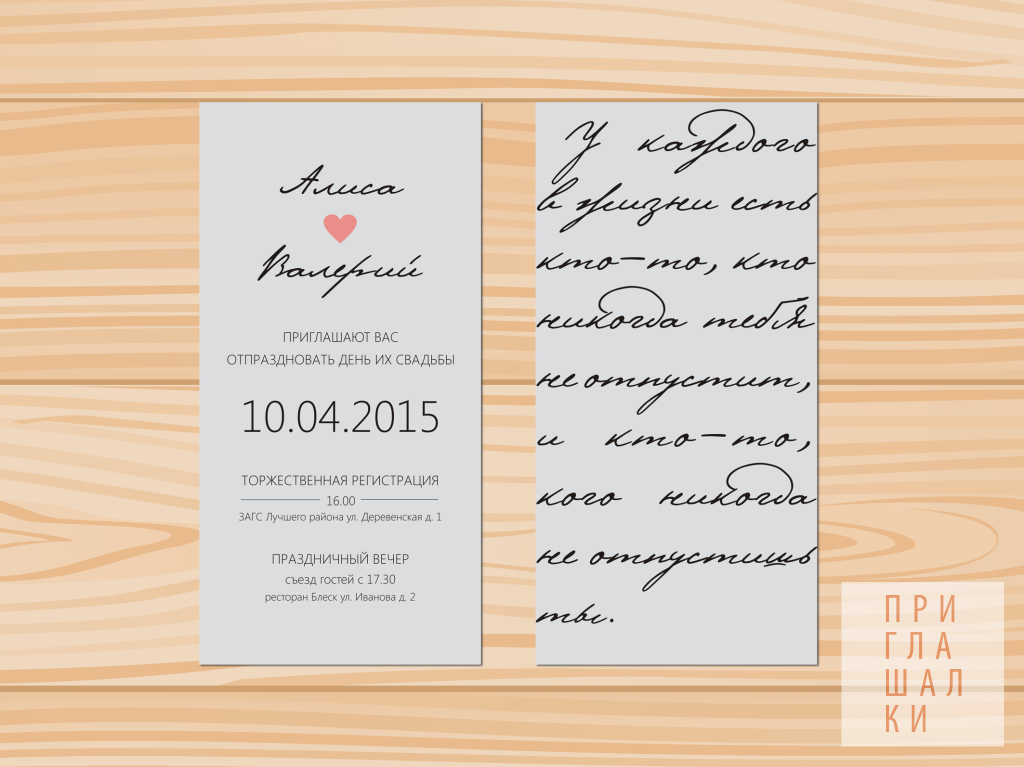 Алиса
Валерий
ПРИГЛАШАЮТ ВАС
ОТПРАЗДНОВАТЬ ДЕНЬ ИХ СВАДЬБЫ
10.04.2015
ТОРЖЕСТВЕННАЯ РЕГИСТРАЦИЯ
16.00
ЗАГС Лучшего района ул. Деревенская д. 1
ПРАЗДНИЧНЫЙ ВЕЧЕР
съезд гостей с 17.30
ресторан Блеск ул. Иванова д. 2
У каждого
в жизни есть
кто-то, кто
никогда тебя
не отпустит,
и кто-то,
кого никогда
не отпустишь
ты.
ПРИ
ГЛА
ШАЛ
КИ